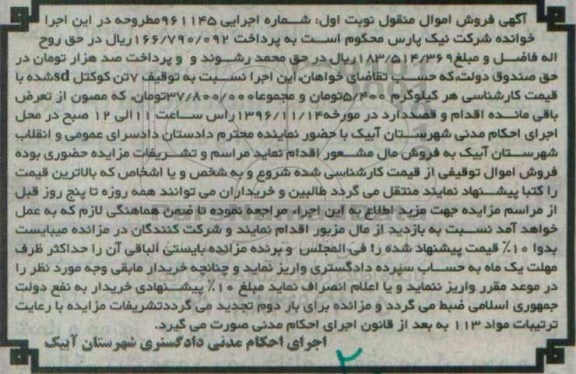 آگهی فروش اموال منقول نوبت اول: شماره اجرایی ۹۶۱۱۴۵مطروحه در این اجرا
خوانده شرکت نیک پارس محکوم است به پرداخت ۱۶۶/۷۹۰/۰۹۲ریال در حق روح
اله فاضل و مبلغ۱۸۳/۵۱۴/۳۶۹ریال در حق محمد رشوند و و پرداخت صد هزار تومان در
حق صندوق دولت،که حسب تقاضای خواهان،این اجرا نسبت به توقیف ۷تن کوکتل sdشده با
قیمت کارشناسی هر کیلوگرم ۵/۴۰۰تومان و مجموعا۳۷/۸۰۰/۰۰۰تومان، که مصون از تعرض
باقی مانده اقدام و قصددارد در مورخه۱۳۹۶/۱۱/۱۴راس ساعت ۱۱الی ۱۲ صبح در محل
اجرای احکام مدنی شهرستان آبیک با حضور نماینده محترم دادستان دادسرای عمومی و انقلاب
شهرستان آبیک به فروش مال مشعور اقدام نماید مراسم و تشریفات مزایده حضوری بوده
فروش اموال توقیفی از قیمت کارشناسی شده شروع و به شخص و یا اشخاص که بالاترین قیمت
را کتبا پیشنهاد نمایند منتقل می گردد طالبین و خریداران می توانند همه روزه تا پنج روز قبل
از مراسم مزایده جهت مزید اطلاع به این اجراء مراجعه نموده تا ضمن هماهنگی لازم که به عمل
خواهد آمد نسبت به بازدید از مال مزبور اقدام نمایند و شرکت کنندگان در مزانده میبایست
بدوا ۱۰٪ قیمت پیشنهاد شده را فی المجلس و برنده مزانده بایستی الباقی آن را حداکثر ظرف
مهلت یک ماه به حساب سپرده دادگستری واریز نماید و چنانچه خریدار مابقی وجه مورد نظر را
در موعد مقرر واریز ننماید و یا اعلام انصراف نماید مبلغ ۱۰٪ پیشنهادی خریدار به نفع دولت
جمهوری اسلامی ضبط می گردد و مزانده برای بار دوم تجدید می گرددتشریفات مزایده با رعایت
ترتیبات مواد ۱۱۳ به بعد از قانون اجرای احکام مدنی صورت می گیرد.
اجرای احکام مدنی دادگستری شهرستان آبیک
۲